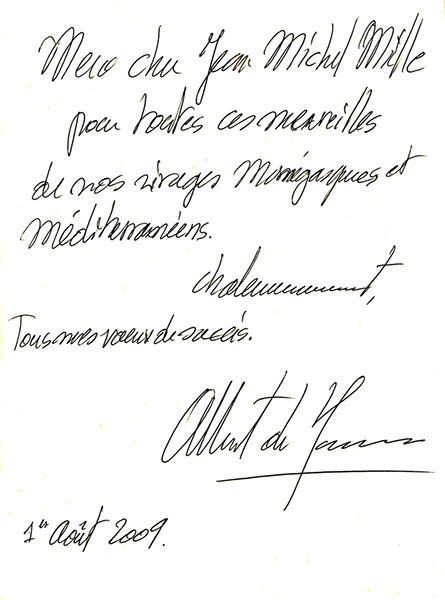 Merci cher Jean Michel Mille
pour toutes ces merveilles
de nos rivages Monégasques et
méditerranéens.
chaleureusement,
Tous mes voeux de succès.
Albert de Monaco
1er Août 2009.